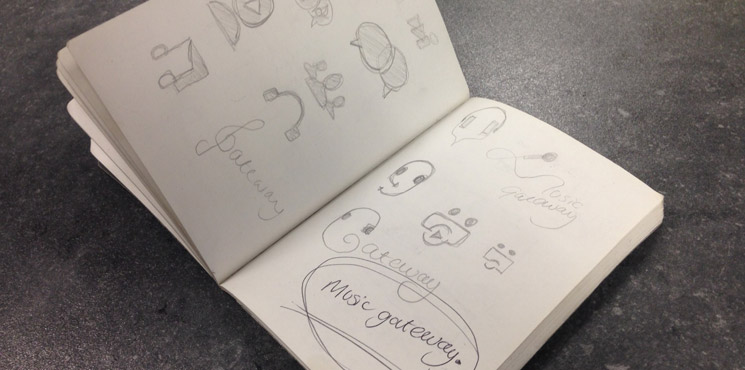 Gateway
Music
Gateway
Gateway
Music gateway.